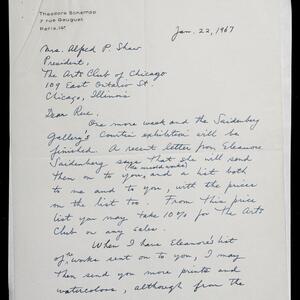 Theodore Schempp
7 rue Gauguet
Paris, 14e
Jan. 22, 1967
Mrs. Alfred P. Shaw
President,
The Arts Club of Chicago
109 East Ontario St.
Chicago, Illinois
Dear Rue,
One more week and the Saidenberg
Gallery's exhibition will be
finished. A recent letter from Eleanore
Saidenberg says that she will send
them on to you, and a list both
to me and to you, with the prices
on the list too. From this price
list you may take 10% for The Arts
Club on any sales.
When I have Eleanore's list
of the works sent on to you, I may
then send you more prints and
watercolors, although from the